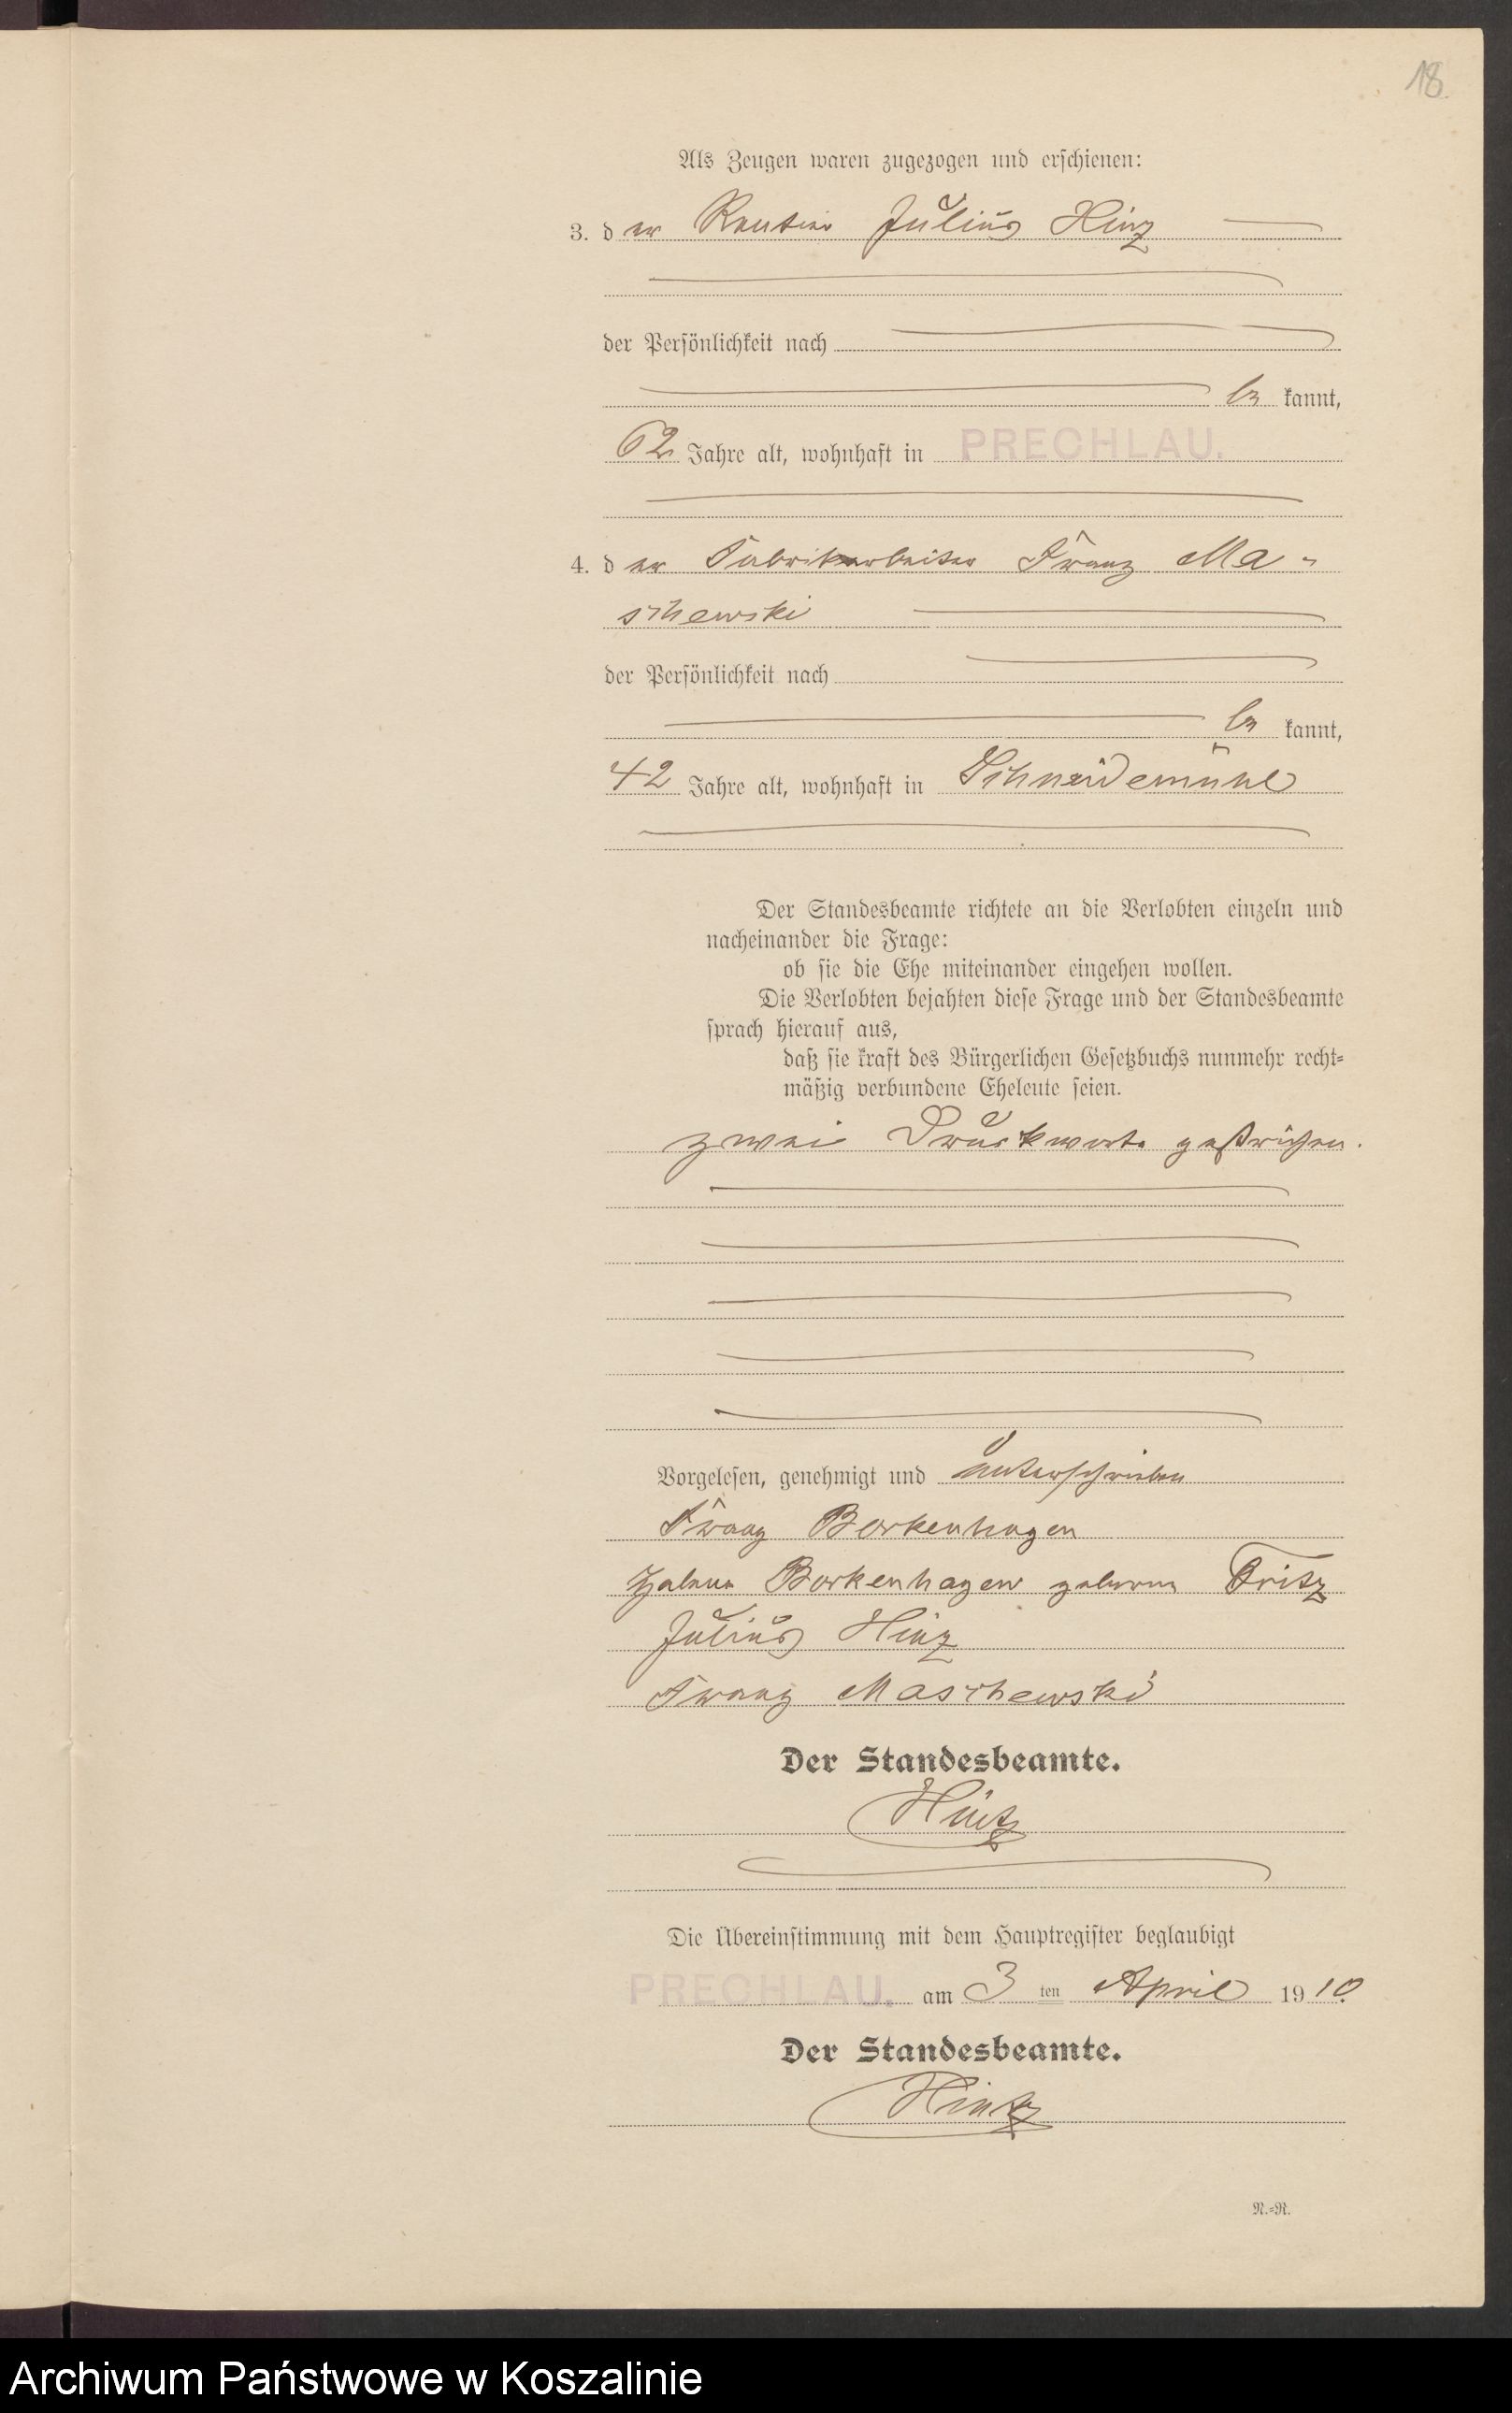 18.
Als Zeugen waren zugezogen und erschienen:
3. der Rentier Julius Hinz
der Persönlichkeit nach
be kannt,
62 Jahre alt, wohnhaft in PRECHLAU.
4. der Fabrikarbeiter Franz Ma-
schewski
der Persönlichkeit nach
be kannt,
42 Jahre alt, wohnhaft in Schneidemühl
Der Standesbeamte richtete an die Verlobten einzeln und
nacheinander die Frage:
ob sie die Ehe miteinander eingehen wollen.
Die Verlobten bejahten diese Frage und der Standesbeamte
sprach hierauf aus,
daß sie kraft des Bürgerlichen Gesetzbuchs nunmehr recht-
mäßig verbundene Eheleute seien.
zwei Druckworte gestrichen.
Vorgelesen, genehmigt und unterschrieben
Franz Borkenhagen
Borkenhagen geborene Fritz
Julius Hinz
Franz Maschewski
Der Standesbeamte.
Hintz
Die Übereinstimmung mit dem Hauptregister beglaubigt
PRECHLAU. am 3 ten April 1910.
Der Standesbeamte.
Hintz
N.-R.
Archiwum Państwowe w Koszalinie